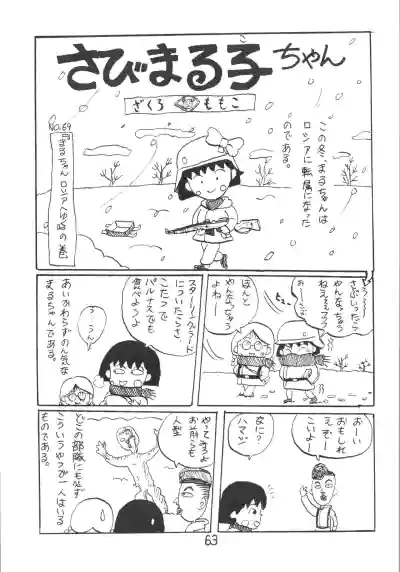 さびまる子ちゃん
ざくろ ももこ
No.69
まるちゃん ロシアへゆく時の巻
この冬、まるちゃんは
ロシアに転属になった
のである。
う〜〜
さぶいったら
ゃんなっちゃう
ねえ
お〜〜
ヒュー
ほんと
やんなっちゃう
よね〜
スターリングラード
についたらさ、
こたつで
パルナスでも
食べようよ
う うん
あいかわらずのん気な
まるちゃんである。
おーい
おもしれ
えぞー
こいよー
なに?
ハマジ
やってみろよ
お前らも
人型
どこの部隊にも必ず
こういうやつが一人はいる
ものである。
63